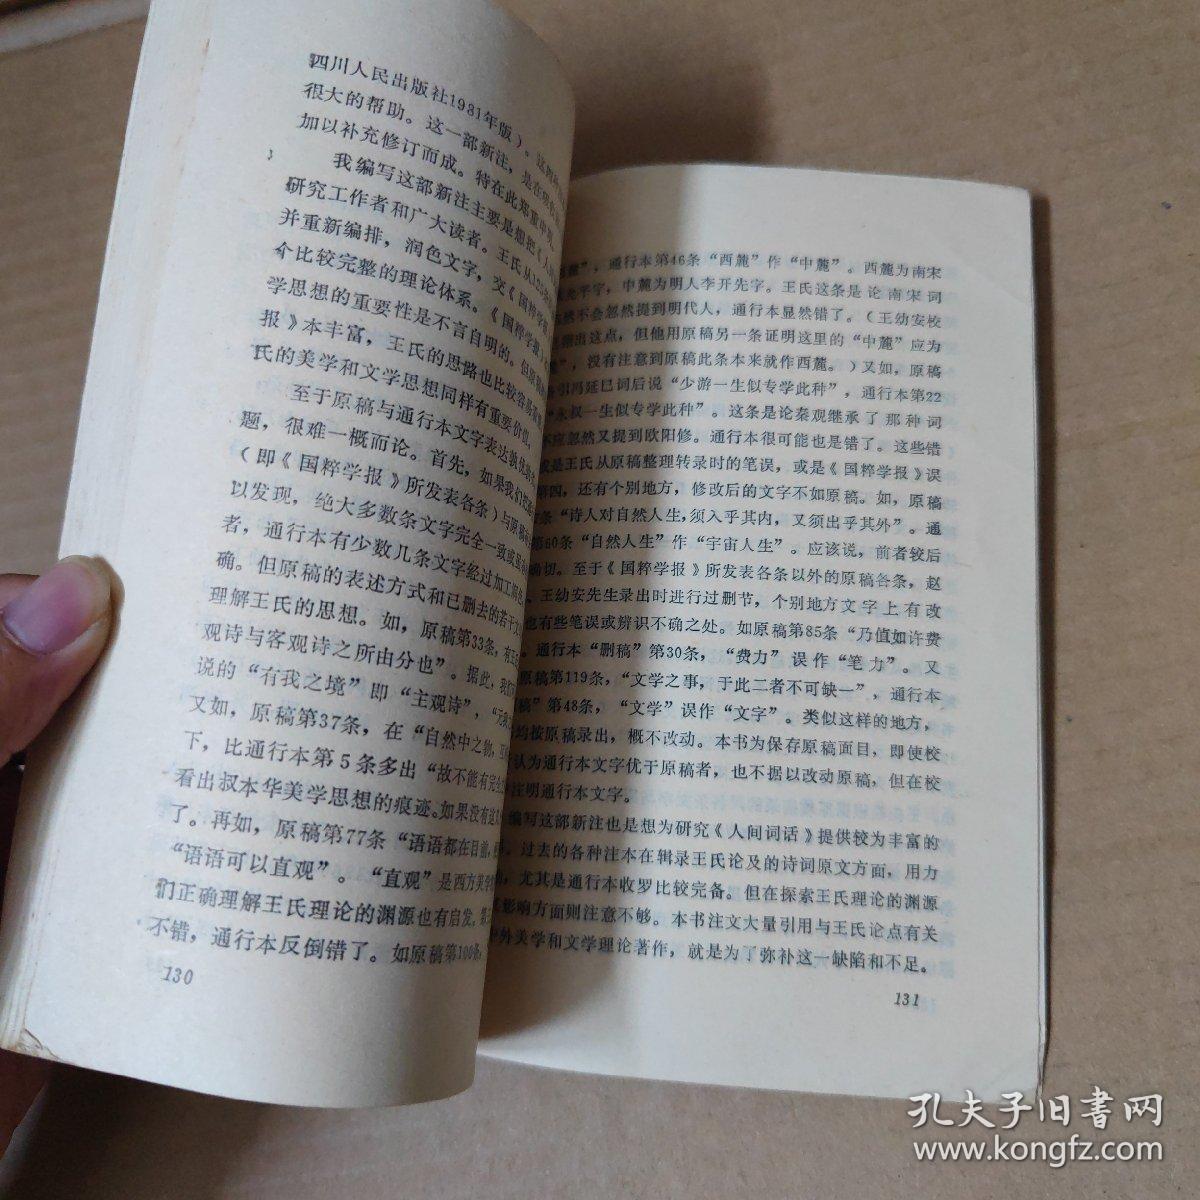 四川人民出版社1981年版）。这四种
很大的帮助。这一部新注，是在
加以补充修订而成。特在此郑重申明。
我编写这部新注主要是想把《人
研究工作者和广大读者。王氏从12
并重新编排，润色文字，交《国粹学
个比较完整的理论体系。《国粹学报》
学思想的重要性是不言自明的。但原稿
报》本丰富，王氏的思路也比较容易
氏的美学和文学思想同样有重要价值。
至于原稿与通行本文字表达孰优孰
题，很难一概而论。首先，如果我们把
（即《国粹学报》所发表各条）与原稿
以发现，绝大多数条文字完全一致或
者，通行本有少数几条文字经过加工润色，
确。但原稿的表述方式和已删去的若干文
理解王氏的思想。如，原稿第33条，有
观诗与客观诗之所由分也”。据此，我们
说的“有我之境”即“主观诗”，“无我
又如，原稿第37条，在“自然中之物，互
下，比通行本第5条多出“故不能有完全
看出叔本华美学思想的痕迹。如果没有这
了。再如，原稿第77条“语语都在目前，
“语语可以直观”。“直观”是西方美学
们正确理解王氏理论的渊源也有启发。第
不错，通行本反倒错了。如原稿第100条
130
麓”，通行本第46条“西麓”作“中麓”。西麓为南宋
允平字，中麓为明人李开先字。王氏这条是论南宋词
然不会忽然提到明代人，通行本显然错了。（王幼安校
指出这点，但他用原稿另一条证明这里的“中麓”应为
”，没有注意到原稿此条本来就作西麓。）又如，原稿
引冯延巳词后说“少游一生似专学此种”，通行本第22
“永叔一生似专学此种”。这条是论秦观继承了那种词
不应忽然又提到欧阳修。通行本很可能也是错了。这些错
或是王氏从原稿整理转录时的笔误，或是《国粹学报》误
第四，还有个别地方，修改后的文字不如原稿。如，原稿
条“诗人对自然人生，须入乎其内，又须出乎其外”。通
第60条“自然人生”作“宇宙人生”。应该说，前者较后
确切。至于《国粹学报》所发表各条以外的原稿各条，赵
、王幼安先生录出时进行过删节，个别地方文字上有改
也有些笔误或辨识不确之处。如原稿第85条“乃值如许费
，通行本“删稿”第30条，“费力”误作“笔力”。又
原稿第119条，“文学之事，于此二者不可缺一”，通行本
稿”第48条，“文学”误作“文字”。类似这样的地方，
均按原稿录出，概不改动。本书为保存原稿面目，即使校
认为通行本文字优于原稿者，也不据以改动原稿，但在校
注明通行本文字。
编写这部新注也是想为研究《人间词话》提供较为丰富的
。过去的各种注本在辑录王氏论及的诗词原文方面，用力
，尤其是通行本收罗比较完备。但在探索王氏理论的渊源
影响方面则注意不够。本书注文大量引用与王氏论点有关
中外美学和文学理论著作，就是为了弥补这一缺陷和不足。
131
孔夫子旧书网
www.kongfz.com